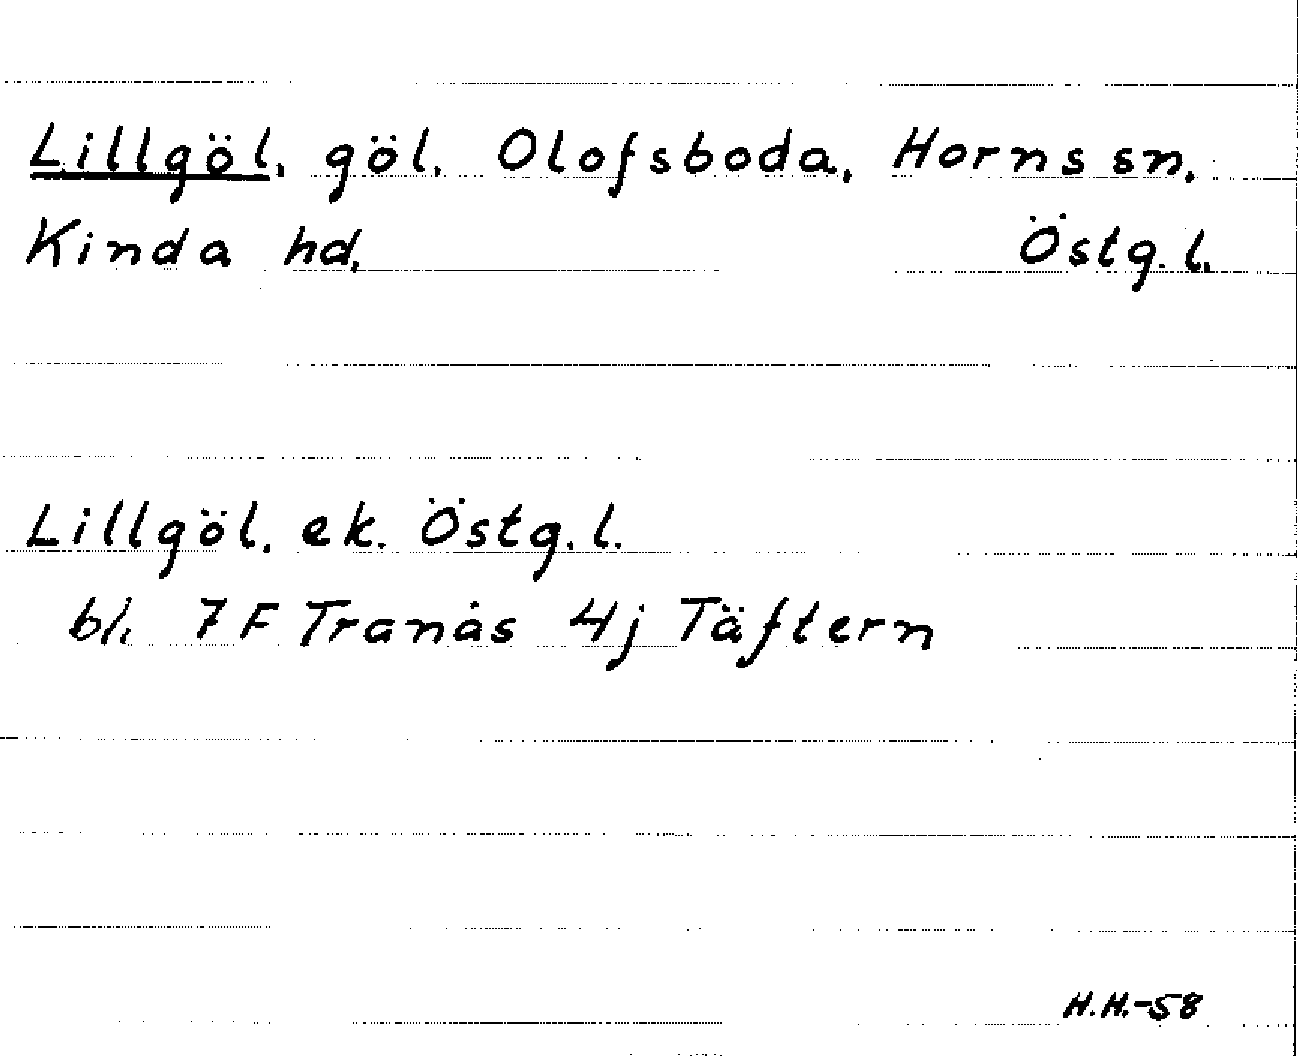 Lillgöl, göl, Olofsboda, Horns sn,
Kinda hd, Östg. l.
Lillgöl, ek. Östg. l.
bl. 7F Tranås 4j Täftern
H.H.-58